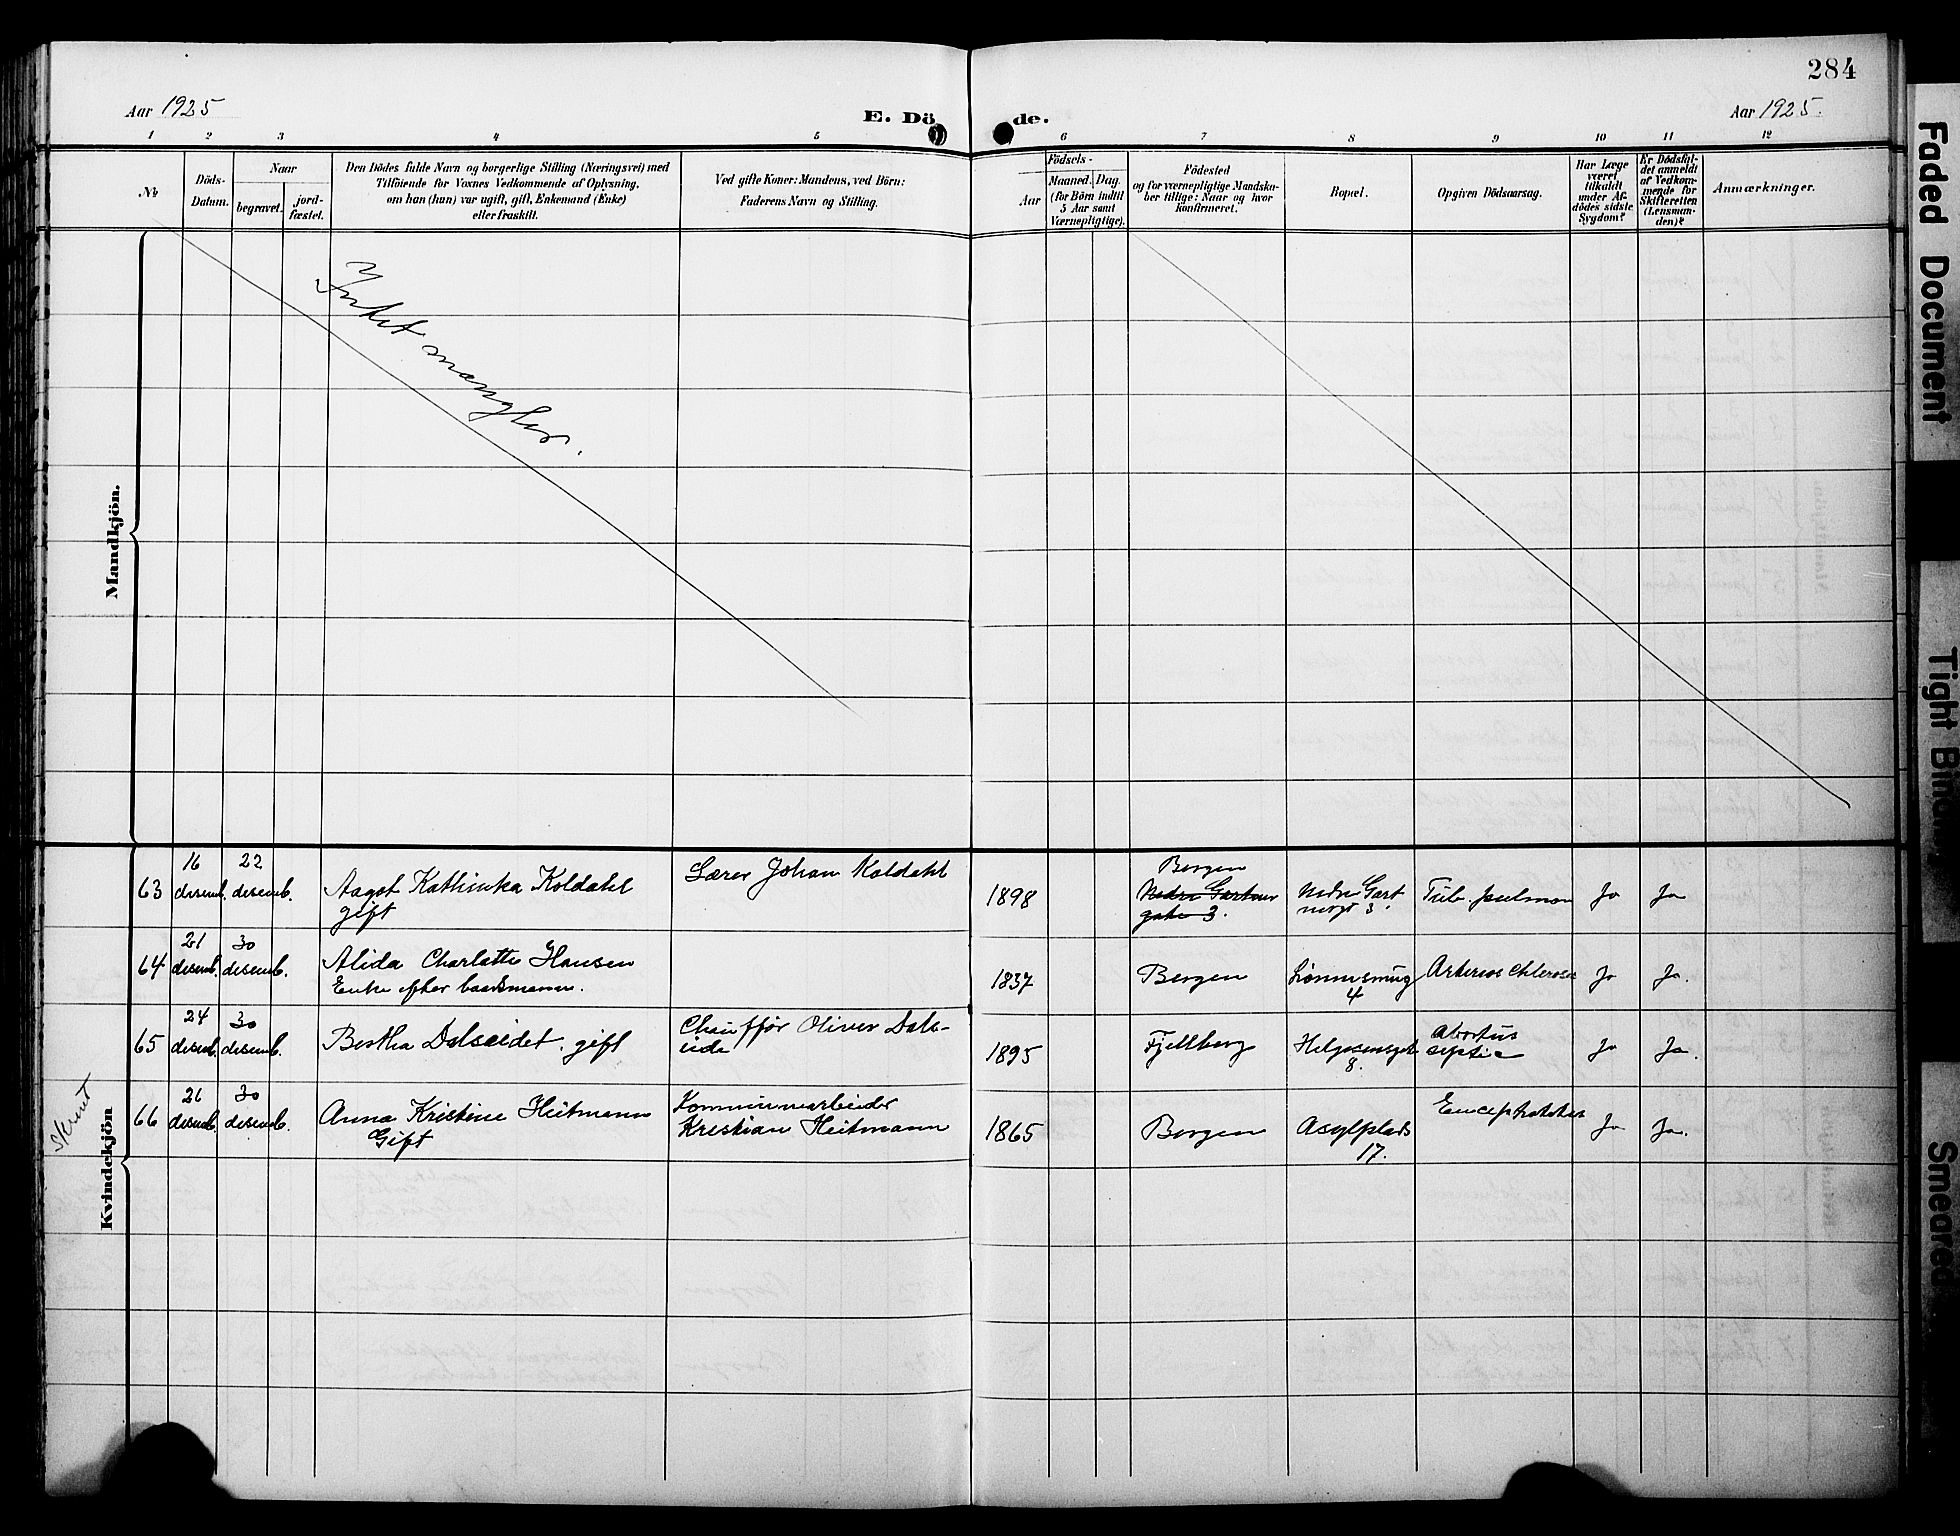 284
Aar 1925
E. Döde.
Aar 1925.
1 2 3 4 5 6 7 8 9 10 11 12
No
Döds-
Datum.
Naar
begravet.
jord-
fæstet.
Den Dödes fulde Navn og borgerlige Stilling (Næringsvei) med
Tilföiende for Voxnes Vedkommende af Oplysning,
om han (hun) var ugift, gift, Enkemand (Enke)
eller fraskilt.
Ved gifte Koner: Mandens, ved Börn:
Faderens Navn og Stilling.
Födsels-
Aar
Maaned. Dag
(for Börn indtil
5 Aar samt
Værnepligtige).
Födested
og for værnepligtige Mandska-
ber tillige: Naar og hvor
konfirmeret.
Bopæl.
Opgiven Dödsaarsag.
Har Læge
været
tilkaldt
under Af-
dödes sidste
Sygdom?
Er Dödsfal-
det anmeldt
af Vedkom-
mende for
Skifteretten
(Lensman-
den)?
Anmærkninger.
Mandkjön.
Intet mangler.
Kvindekjön
63
16
desemb.
22
desemb.
Aagot Kathinka Koldahl
gift
Lærer Johan Koldahl
1898
Bergen
Nedre Gartner
gate 3.
Nedre Gart
nergt 3.
Tub. pulmon
Ja
Ja
64
21
desemb.
30
desemb.
Alida Charlotte Hansen
Enke efter baadsmann.
1837
Bergen
4
Ja
Ja.
65
24
desemb.
30
desemb.
Bertha Dalseidet. gift
Chauffør Oliver Dals-
eide
1895
Fjellberg
Helgesensgt
8.
Abortus
septic
Ja
Ja.
66
21
desemb.
30
desemb.
Anna Kristine Heitmann
Gift
Kommunearbeider
Kristian Heitmann
1865
Bergen
Asylplads
17.
Ja
Ja.
Faded Document
Tight Binding
Smeared